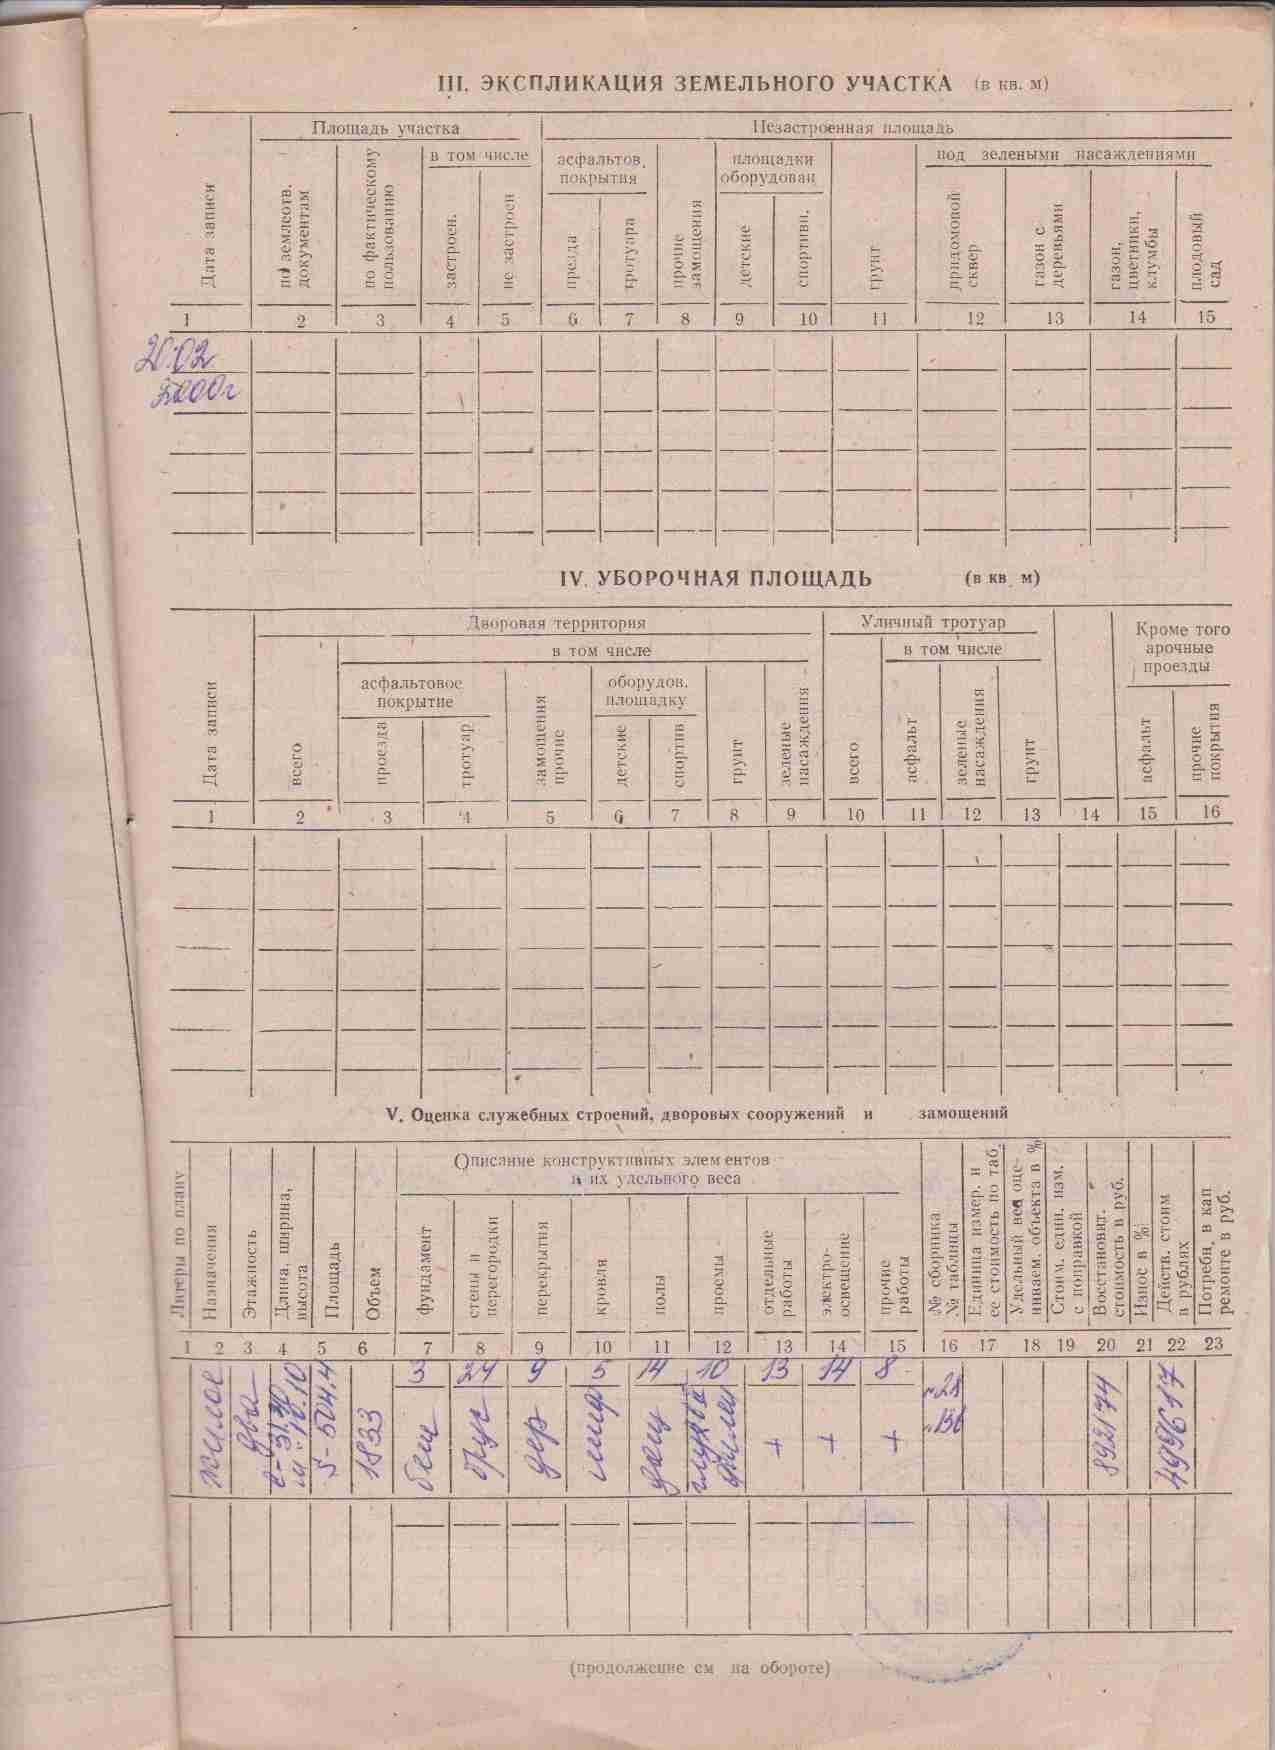 III. ЭКСПЛИКАЦИЯ ЗЕМЕЛЬНОГО УЧАСТКА (в кв. м)
Дата записи
Площадь участка
по землеотв. документам
по фактическому пользованию
в том числе
застроен.
не застроен
Незастроенная площадь
асфальтов. покрытия
презда
тротуара
прочие замощения
площадки оборудован
детские
спортивн.
грунт
под зелеными насаждениями
придомовой сквер
газон с деревьями
газон, цветники, клумбы
плодовый сад
1 2 3 4 5 6 7 8 9 10 11 12 13 14 15
20.02.
2000г
IV. УБОРОЧНАЯ ПЛОЩАДЬ (в кв. м)
Дата записи
Дворовая территория
всего
в том числе
асфальтовое покрытие
проезда
тротуар
замощения прочие
оборудов. площадку
детские
спортив
грунт
зеленые насаждения
Уличный тротуар
всего
в том числе
асфальт
зеленые насаждения
грунт
Кроме того арочные проезды
асфальт
прочие покрытия
1 2 3 4 5 6 7 8 9 10 11 12 13 14 15 16
V. Оценка служебных строений, дворовых сооружений и замощений
Литеры по плану
Назначения
Этажность
Длина, ширина, высота
Площадь
Объем
Описание конструктивных элементов и их удельного веса
фундамент
стены и перегородки
перекрытия
кровля
полы
проемы
отдельные работы
электро-освещение
прочие работы
№ сборника № таблицы
Единица измер. и ее стоимость по таб.
Удельный вес оце-ниваем. объекта в %
Стоим. един. изм. с поправкой
Восстановит. стоимость в руб.
Износ в %
Действ. стоим в рублях
Потребн. в кап ремонте в руб.
1 2 3 4 5 6 7 8 9 10 11 12 13 14 15 16 17 18 19 20 21 22 23
3 24 9 5 14 10 13 14 8
жилое
два
S-504,4
1833
брус
дер
шиф
дощ
+ + +
№28
892174
499617
(продолжение см на обороте)